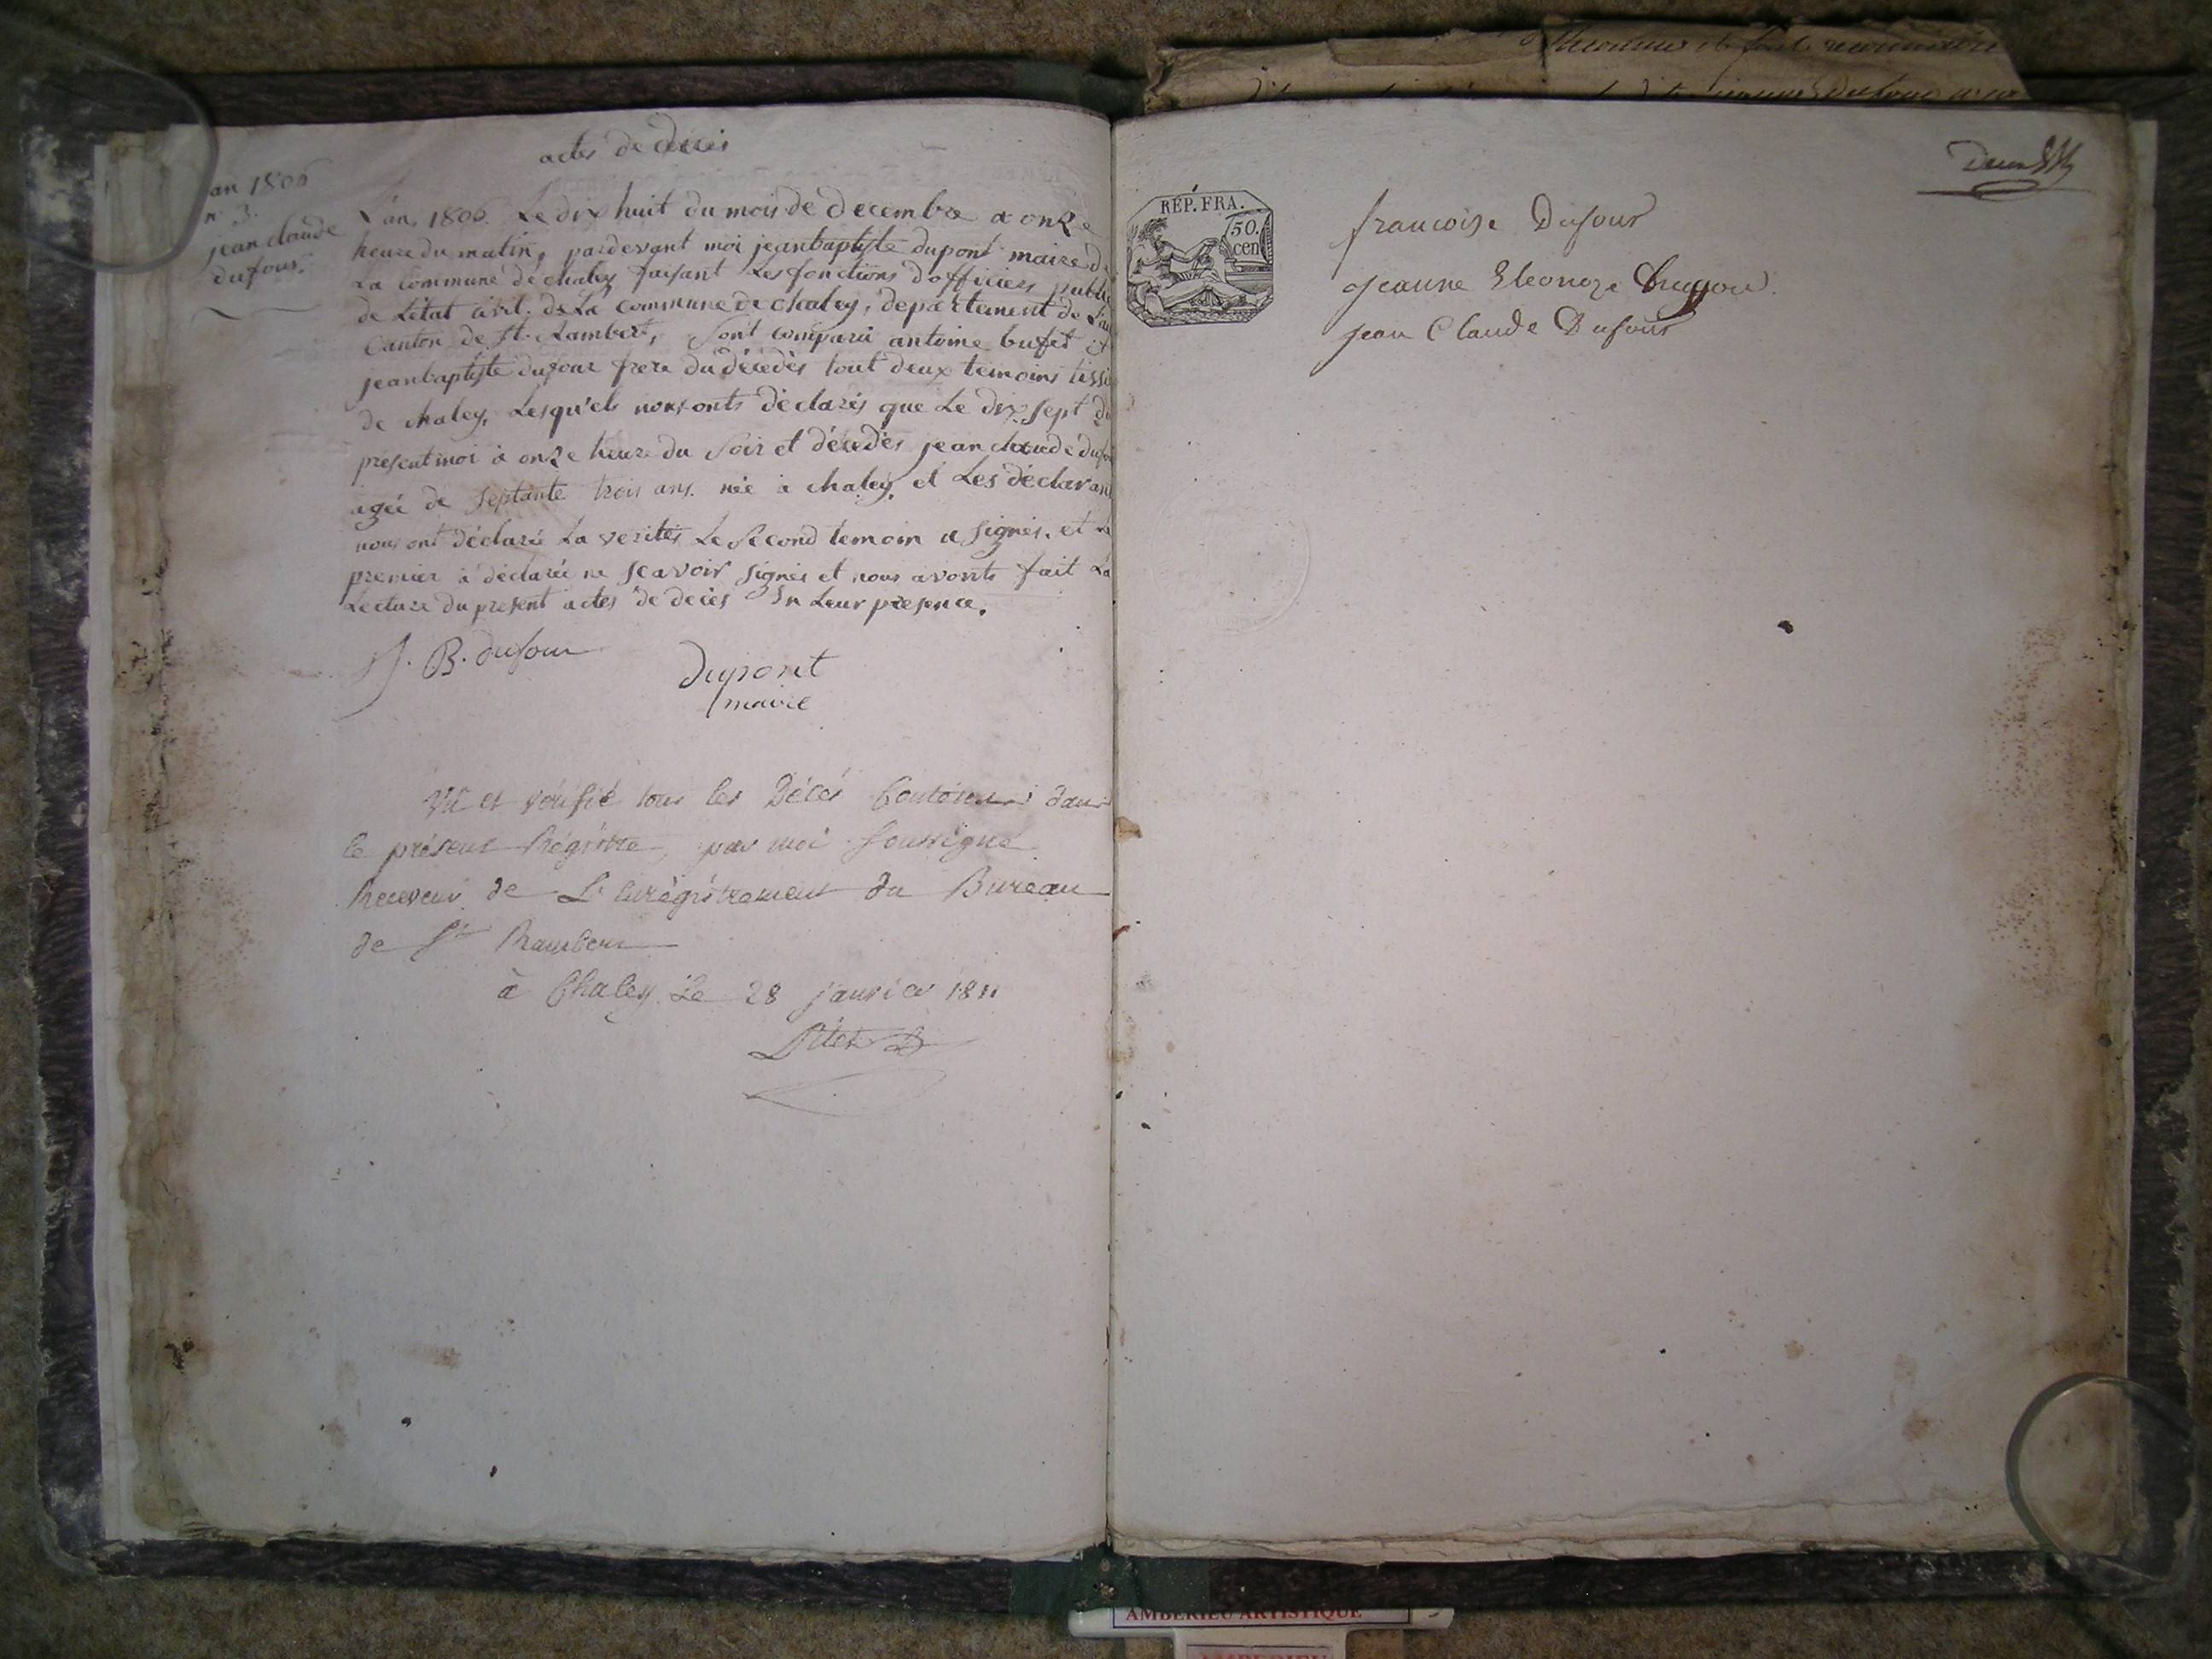 actes de décès
an 1806
n° 3.
jean claude
dufour.
L'an 1806. Le dix huit du mois de decembre a onze
heure du matin, pardevant moi jeanbaptiste dupont maire d
La commune de chaley faisant Les fonctions d'officiers public
de L'état civil. de La commune de chaley, departement de L'ain
Canton de St. Rambert, sont comparu antoine bufet et
jeanbaptiste dufour frere du décédés tout deux temoins tissi
de chaley, Lesqu'els nous onts déclarés que Le dix sept du
présent moi à onze heure du soir et décédés jean claude dufou
agée de septante trois ans. née à chaley, et Les déclarant
nous ont déclaré La verités Le second temoin a signés, et Le
premier à déclarée ne scavoir signés et nous avonts fait La
Lecture du present actes de décès En Leur présence.
J. B. dufour
Dupont
maire
Vu et vérifié tous les Décès Contenus dans
le présent Régistre, par moi soussigné
Receveur de L'enrégistrement du Bureau
de St Rambert
à Chaley Le 28 janvier 1811
RÉP. FRA.
50.
cen
francoise Dufour
jeanne Eleonore
jean Claude Dufour
AMBERIEU ARTISTIQUE
AMBERIEU